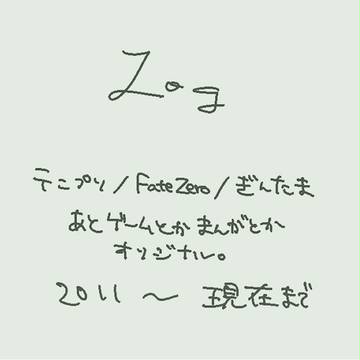 Log
テニプリ/FateZero/ぎんたま
あとゲームとかまんがとか
オリジナル。
2011〜現在まで